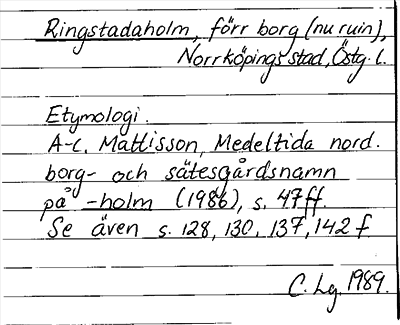 Ringstadaholm, förr borg (nu ruin),
Norrköpings stad, Östg. l.
Etymologi.
A-C. Mattisson, Medeltida nord.
borg- och sätesgårdsnamn
på -holm (1986), s. 47ff.
Se även s. 128, 130, 137, 142 f.
C. Lg. 1989.